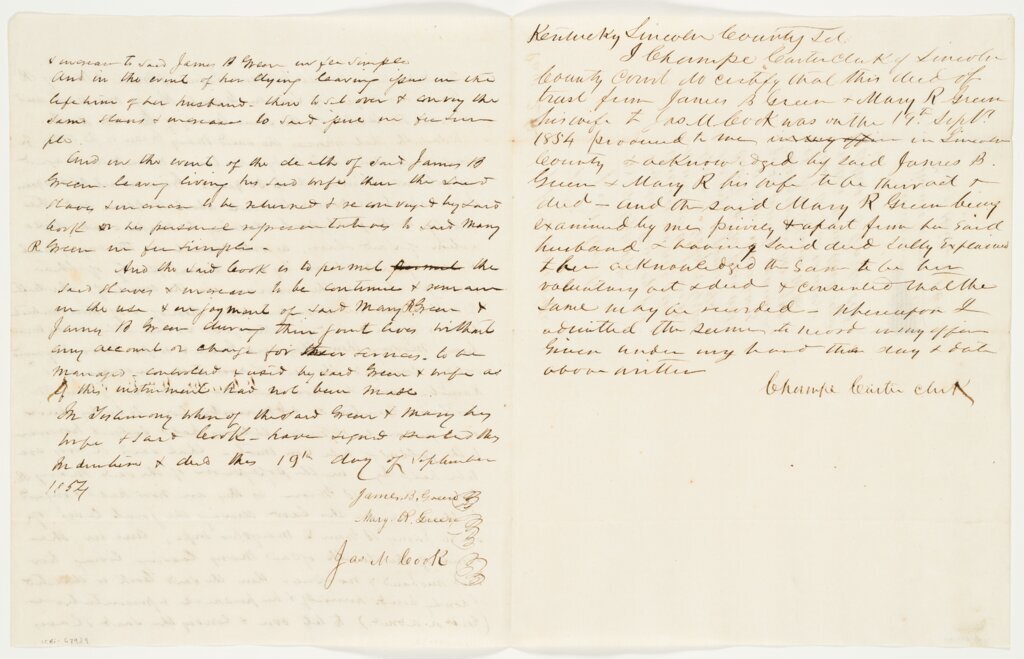 & increase to said James B Green in fee simple
And in the event of her dying leaving issue in the
lifetime of her husband. then to set over & convey the
same slaves & increase to said issue in fee sim
ple.
And in the event of the death of said James B
Green. leaving living his said wife then the said
slaves & increase to be returned & reconveyed by said
Cook or his personal representatives to said Mary
R Green in fee simple.
And the said Cook is to permit permit the
said slaves & increase to be continue & remain
in the use & enjoyment of said Mary R Green &
James B Green during their joint lives without
any account or charge for their services. to be
managed. controlled & used by said Green & wife as
if this instrument had not been made
In Testimony whereof the said Green & Mary his
wife & said Cook - have signed sealed this
Indenture & deed this 19th day of September
1854
James B. Green
Mary. R. Green
Jas M Cook
Kentucky Lincoln County Sct
I Champe Carter Clerk of Lincoln
County Court do certify that this deed of
trust from James B Green & Mary R Green
his wife to Jas M Cook was on the 19th. Septr
1854 produced to me in my office in Lincoln
County & acknowledged by said James B.
Green & Mary R his wife to be their act &
deed - and the said Mary R Green being
examined by me privily & apart from her said
husband & having said deed fully explained
to her acknowledged the same to be her
voluntary act & deed & consented that the
same may be recorded - whereupon I
admitted the same to record in my office
Given under my hand the day & date
above written
Champe Carter Clerk